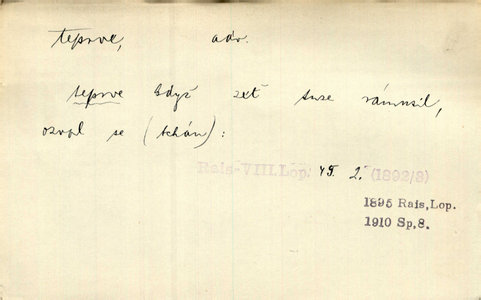 teprve, adv.
teprve když zeť tuze rámusil,
ozval se (tchán):
Rais-VIII.Lop. 49. 2. (1892/3)
1895 Rais,Lop.
1910 Sp,8.